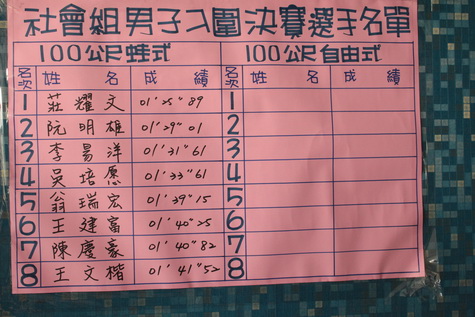 社會組男子入圍決賽選手名單
100公尺蛙式 100公尺自由式
名次 姓名 成績 名次 姓名 成績
1 莊耀文 01'25"89 1
2 阮明雄 01'29"01 2
3 李易洋 01'31"61 3
4 吳培愿 01'33"61 4
5 翁瑞宏 01'39"15 5
6 王建富 01'40"25 6
7 陳慶豪 01'40"82 7
8 王文楷 01'41"52 8